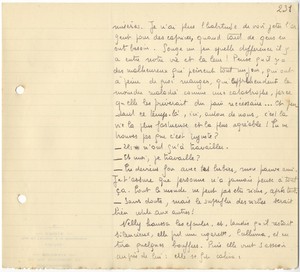 231
misère. Je n'ai plus l'habitude de voir jeter l'ar-
gent par des caprices, quand tant de gens en
ont besoin. Songe un peu quelle différence il y
a entre notre vie et la leur! Pense qu'il y a
des malheureux qui peinent tout un jour, qui ont
à peine de quoi manger, qui appréhendent la
moindre maladie comme une catastrophe, parce
qu'elle les priverait du pain nécessaire... Et pen-
dant ce temps-là, ici, autour de nous, c'est la
vie la plus facile et la plus agréable! Tu ne
trouves pas que c'est injuste?
— Ils n'ont qu'à travailler.
— Et moi, je travaille?
— Tu devrais fuir avec tes livres, mon pauvre ami.
Je t'assure que personne n'a jamais pensé à tout
ça. Tout le monde ne peut pas être riche, après tout.
— Sans doute, mais le superflu des riches serait
bien utile aux autres!
Nelly haussa les épaules, et, tandis qu'il restait
silencieux, elle prit une cigarette, l'alluma, et en
tira quelques bouffées. Puis elle vint s'asseoir
auprès de lui: elle se fit câline.